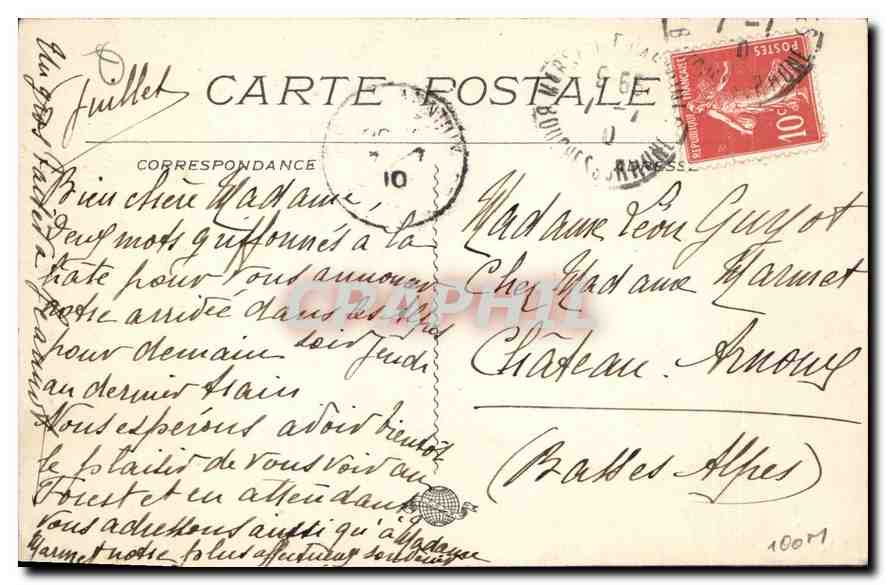 CARTE POSTALE
CORRESPONDANCE
ADRESSE
REPUBLIQUE FRANÇAISE
POSTES
10 c
10
Juillet
Bien chère Madame,
Deux mots griffonnés à la
hâte pour vous annoncer
notre arrivée dans les Alpes
pour demain soir jeudi
au dernier train
Nous espérons avoir bientôt
le plaisir de vous voir au
Forest et en attendant
vous adressons ainsi qu'à Madame
Marmet notre plus affectueux souvenir
Un gros baiser à
Madame Léon Guyot
Chez Madame Marmet
Château-Arnoux
(Basses Alpes)
100M
CPAPHIL